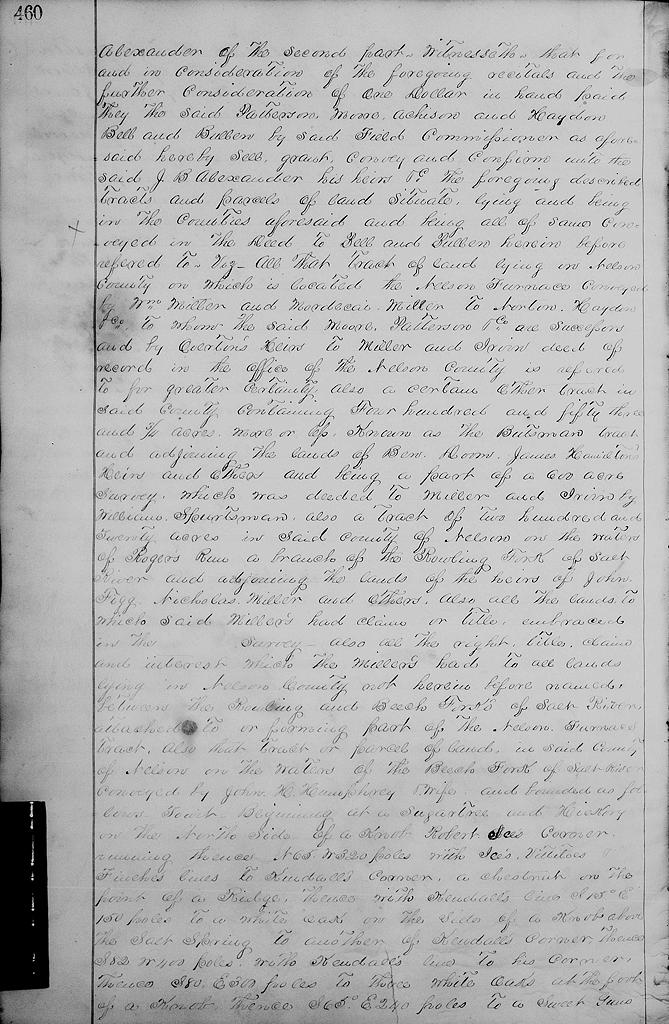 460
Alexander of the second part. Witnesseth that for
and in consideration of the foregoing recitals and the
further consideration of One Dollar in hand paid
they the said Patterson, Moore, Achison and Haydon
Bell and Bullen by said Field Commissioner as afore-
said hereby Sell, grant, Convey and Confirm unto the
said J B Alexander his heirs &c the foregoing described
tracts and parcels of land situate, lying and being
in the Counties aforesaid and being all of same Con-
-veyed in the Deed to Bell and Bullen herein before
refered to - Viz - All that tract of land lying in Nelson
County on which is located the Nelson Furnace Conveyed
by Wm Miller and Mordecai Miller to Norton, Haydon
&Co, to whom the said Moore, Patterson &Co are Successors
and by Overton's Heirs to Miller and Irvin deed of
record in the office of the Nelson County is refered
to for greater Certainty also a certain other tract in
said County Containing Four hundred and fifty three
and ¾ acres more or less Known as the Butsman tract
and adjoining the lands of Ben. Doom, James Hamilton's
Heirs and Others and being a part of a 600 acre
Survey, which was deeded to Miller and Irvin by
William Spurtsman, also a tract of two hundred and
Twenty acres in said county of Nelson on the waters
of Rogers Run a branch of the Rowling Fork of Salt
River and adjoining the lands of the heirs of John
Figg, Nicholas Miller and Others. Also all the lands to
which said Miller's had claim or title, embraced
in the Survey - also all the right, title, claim
and interest which the Millers had to all lands
lying in Nelson County not herein before named,
between the Rowling and Beech Forks of Salt River,
attached to or forming part of the Nelson Furnace
tract, Also that tract or parcel of land, in said County
of Nelson on the waters of the Beech Fork of Salt River
Conveyed by John H. Humphrey & Wife and bounded as fol
lows Towit. Beginning at a Sugartree and Hickory
on the North Side of a Knob Robert Ice's Corner,
running thence N65 W320 poles with Ice's, Villitoes &
Finches lines to Kendall's Corner, a chestnut on the
point of a Ridge, Thence with Kendall's line S15° E
150 poles to a white Oak on the side of a Knob above
the Salt Spring to another of Kendall's Corner thence
S82 W400 poles with Kendall's line to his Corner,
Thence S80, E300 poles to three white Oaks at the foot
of a Knob, Thence S65° E240 poles to a Sweet Gum